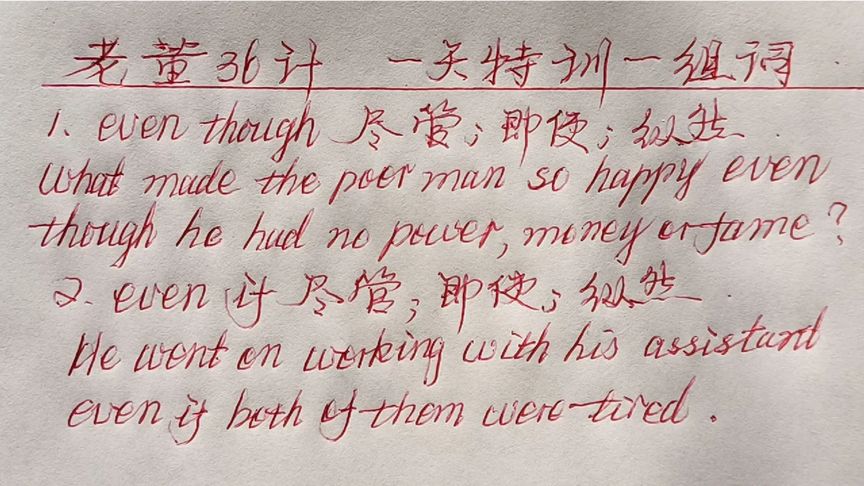 老董36计 一天特训一组词
1. even though 尽管；即使；纵然.
What made the poor man so happy even
though he had no power, money or fame?
2. even if 尽管；即使；纵然.
He went on working with his assistant
even if both of them were tired.